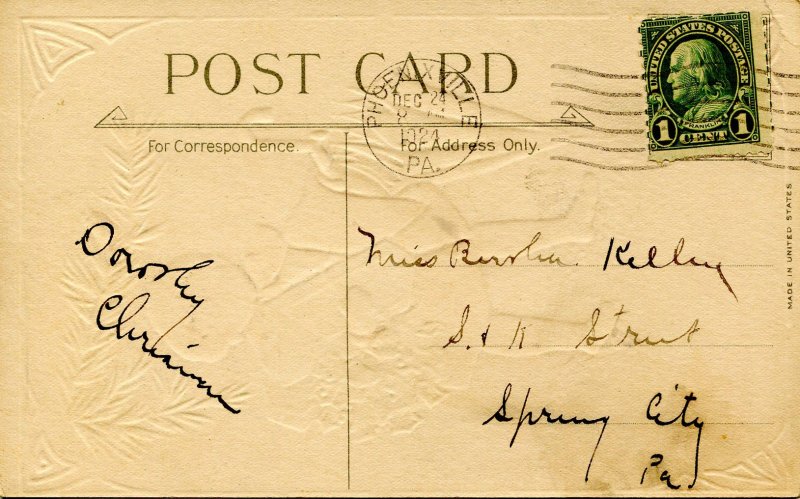 POST CARD
For Correspondence.
For Address Only.
PHOENIXVILLE
DEC 24
8
1924
PA.
UNITED STATES POSTAGE
FRANKLIN
1 CENT 1
MADE IN UNITED STATES
Dorothy
Miss Kelley
S. & K Street
Spring City
Pa.